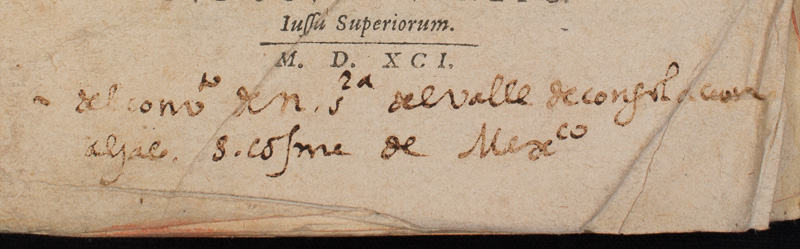 Iuſſu Superiorum.
M. D. XCI.
del convto de n. sra del valle de consolacion
alias. S. coſme de Mexco